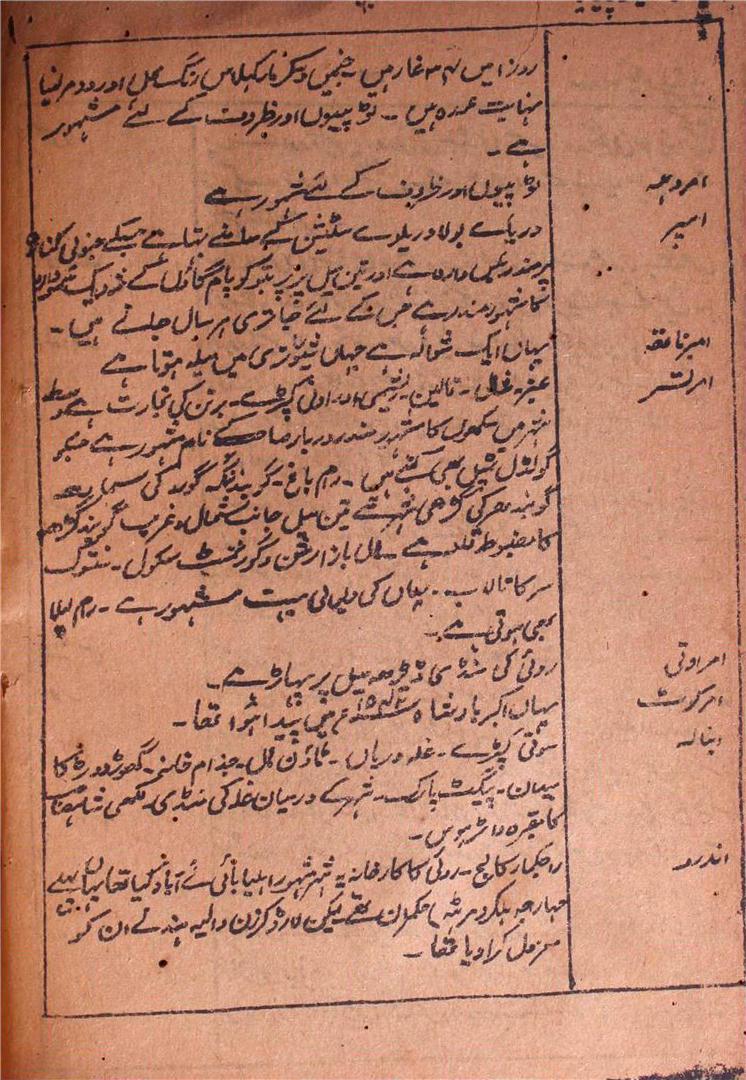 روزا میں ۳۴ غار ہیں۔ جنمیں دیکرنا کہلاس رنگ محل اور دومرلنیا
نہایت عمدہ ہیں۔ ٹوپیوں اور ظروف کے لئے مشہور
ہے۔
امروہہ
ٹوپیوں اور ظروف کے لئے مشہور ہے
امبر
دریائے بولا دریلوے سٹیشن کے سامنے بہتا ہے جسکے جنوبی کنارے
پر مندر ہے اور تین میل پر کو پام گاؤں کے نزدیک
کا مشہور مندر ہے جس کے لئے جاتری ہر سال جاتے ہیں۔
امبرناتھ
یہاں ایک شوالہ ہے جہاں شیوتری میں میلہ ہوتا ہے
امرتسر
غلہ۔ قالین۔ ریشمی اور اونی کپڑے۔ برتن کی تجارت ہے وسط
شہر میں سکھوں کا مشہور مندر دربار صاحب کے نام مشہور ہے جسکو
گولڈن ٹمپل بھی کہتے ہیں۔ رام باغ۔ گوبند گڈھ گورو کی سمادھ
گوبند گڑھی شہر سے تین میل جانب شمال و غرب گوبند گڑھ
کا مضبوط قلعہ ہے۔ ہال بازار مشن و گورنمنٹ سکول۔ سنتوک
سر کا تالاب۔ یہاں کی دیوالی بہت مشہور ہے۔ رام لیلا
بھی ہوتی ہے۔
امراوتی
روئی کی منڈی ڈیڑھ میل پر پہاڑ ہے۔
امرکوٹ
یہاں اکبر بادشاہ ۱۵۴۲ء میں پیدا ہوا تھا۔
انبالہ
سوتی کپڑے۔ غلہ دریاں۔ ٹاؤن ہال۔ جذام خانہ۔ گھوڑ دوڑ کا
میدان۔ پیگٹ پارک۔ شہر کے درمیان غلہ کی منڈی۔ لکھی شاہ صاحب
کا مقبرہ
اندور
راجکمار کالج۔ روئی کا کارخانہ یہ شہر مشہور اہلیا بائی نے آباد کیا تھا یہاں پہلے
مہاراجہ ہلکر (مرہٹہ) حکمران تھے لیکن لارڈ کرزن والیہ ہند نے ان کو
معزول کرا دیا تھا۔